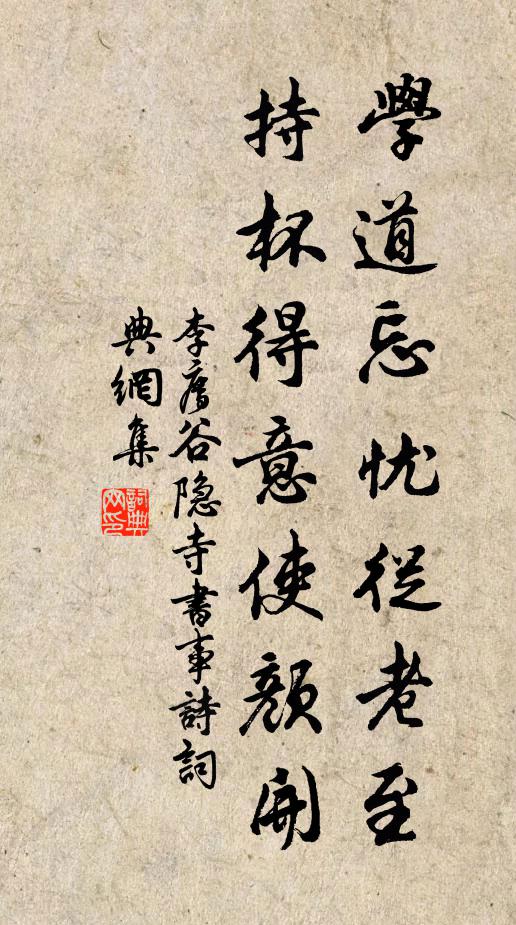 學道忘忧從老至
持杯得意使顏開
李廌谷隐寺書事詩詞
典網集
詞典
网印